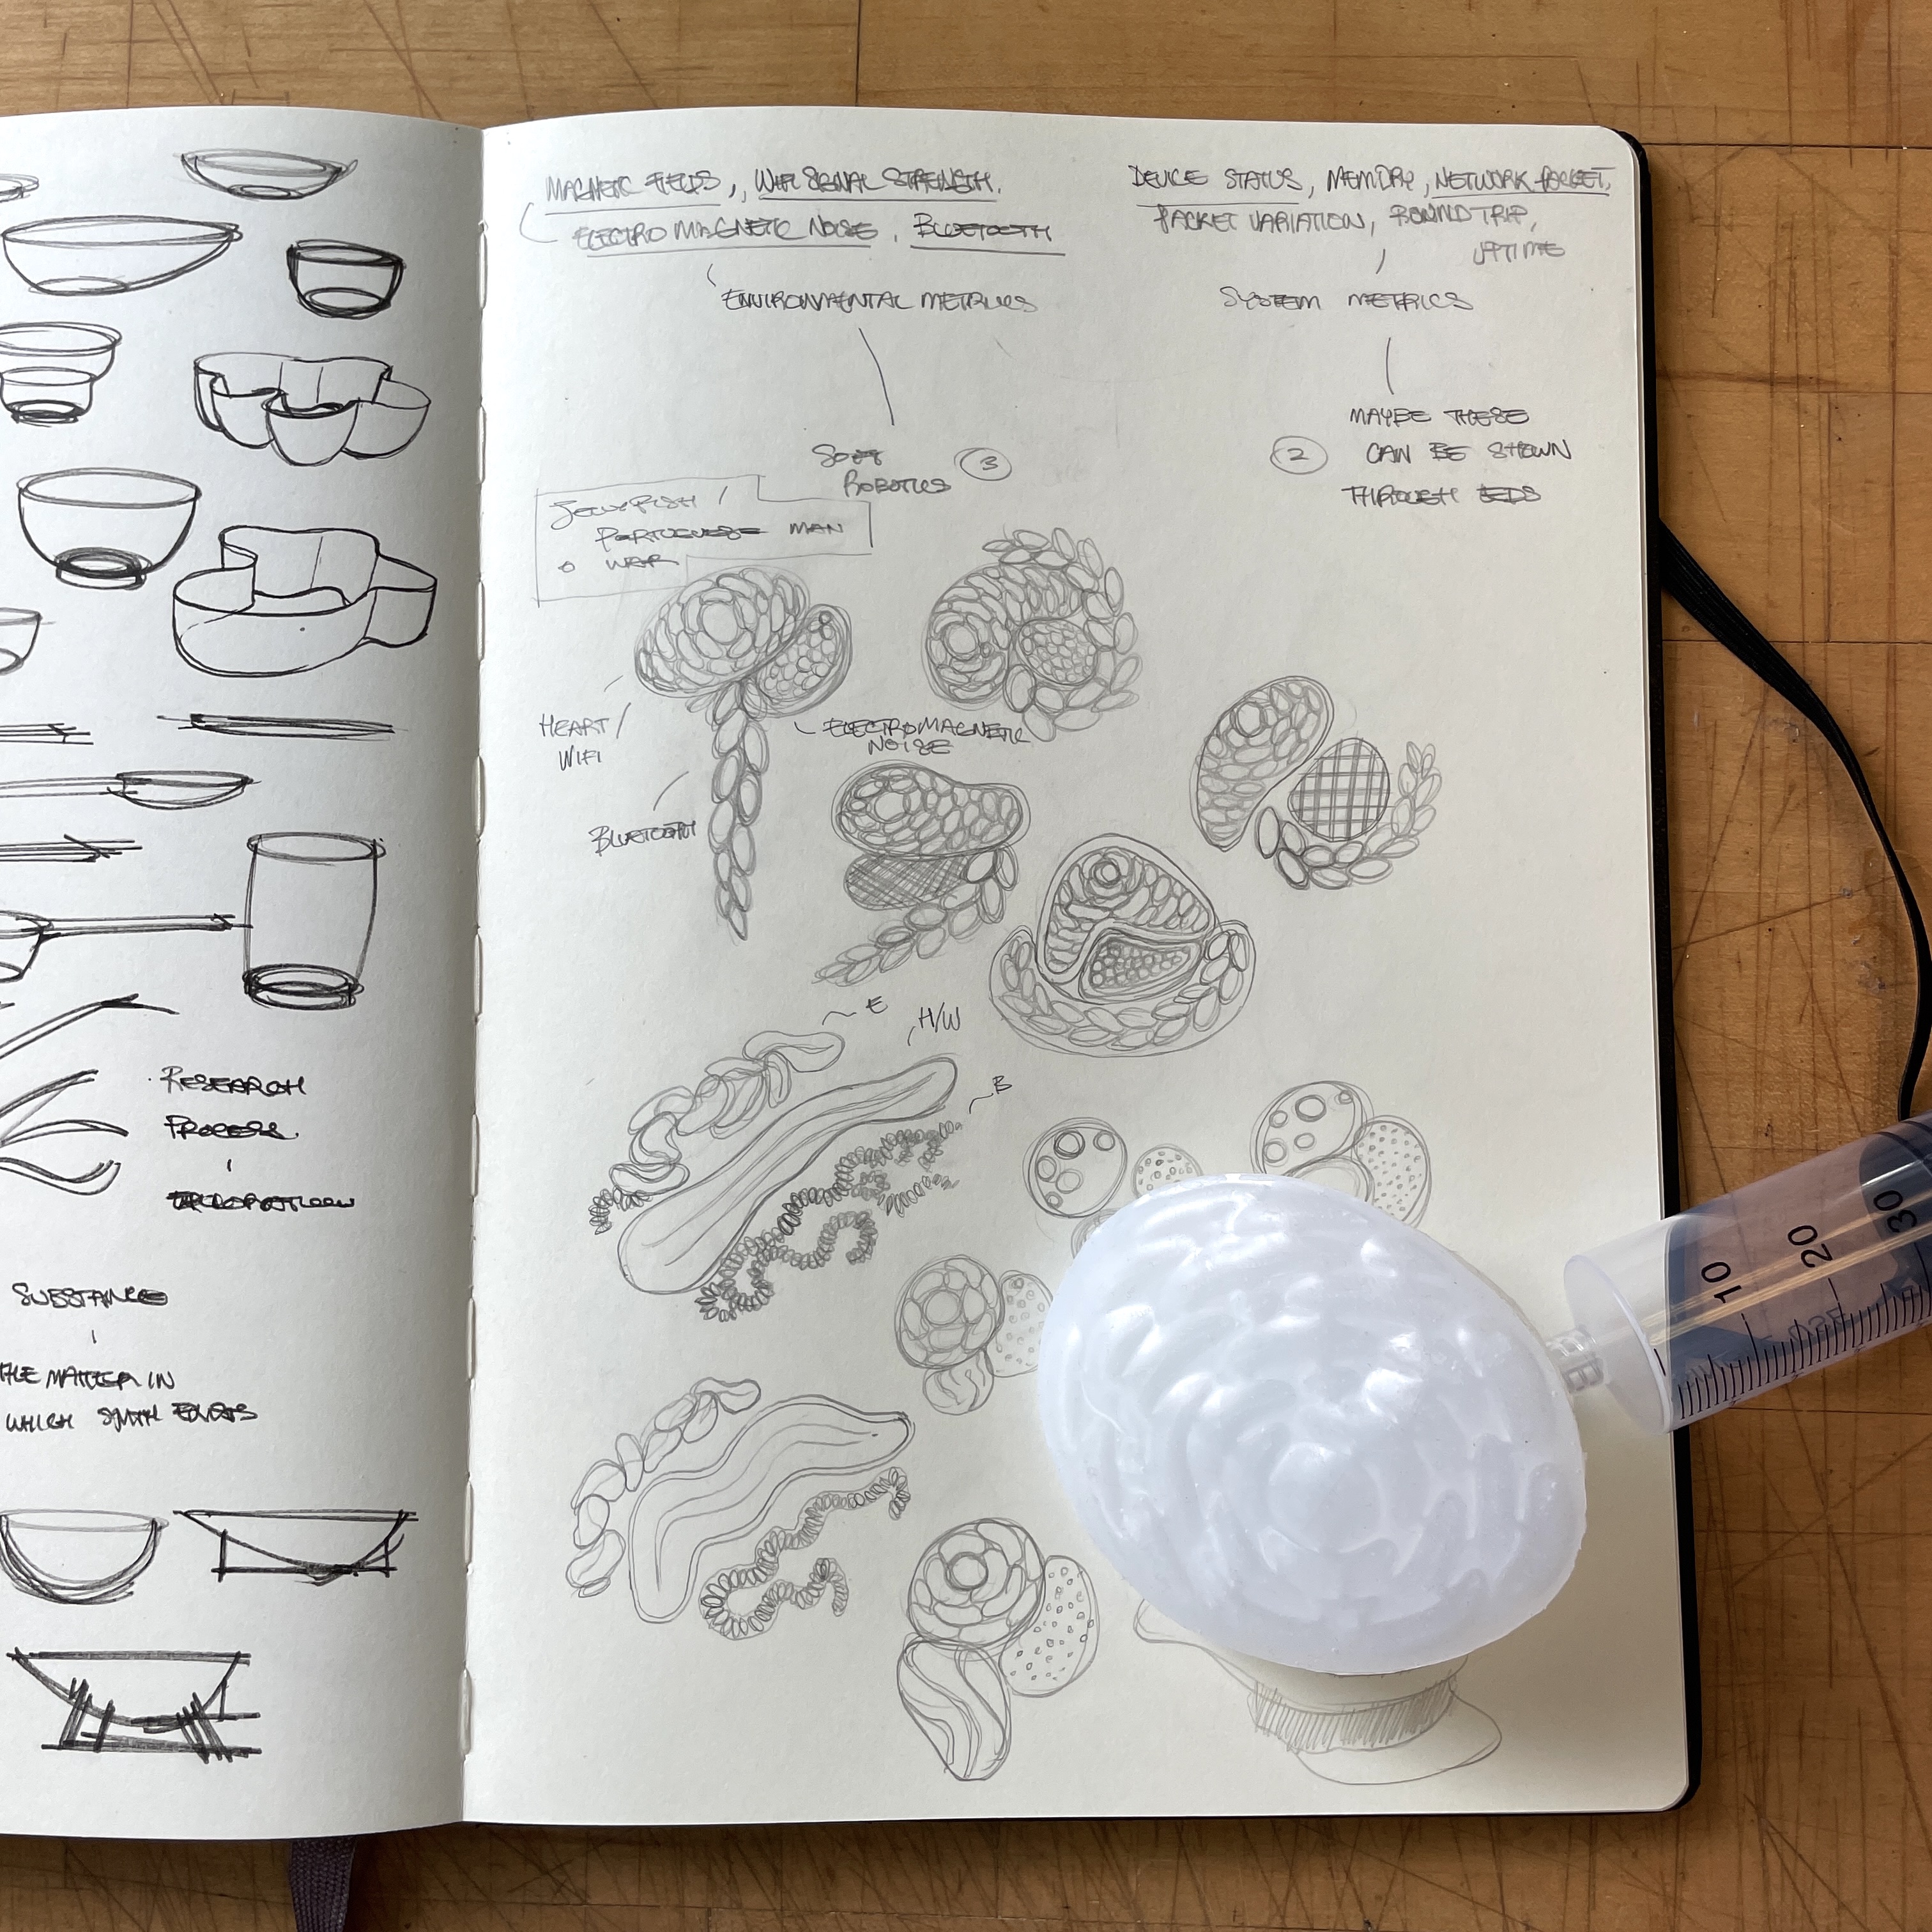 RESEARCH
PROCESS.
SUBSTANCE
THE MATTER IN
WHICH SYNTH EXISTS
MAGNETIC FIELDS, WIFI SIGNAL STRENGTH,
ELECTROMAGNETIC NOISE, BLUETOOTH
ENVIRONMENTAL METRICS
SOFT
ROBOTICS 3
DEVICE STATUS, MEMORY, NETWORK PACKET,
PACKET VARIATION, ROUND TRIP,
UPTIME
SYSTEM METRICS
2 MAYBE THESE
CAN BE SHOWN
THROUGH LEDS
JELLYFISH /
PORTUGUESE MAN
O WAR
HEART/
WIFI
ELECTROMAGNETIC
NOISE
BLUETOOTH
E
H/W
B
10
20
30